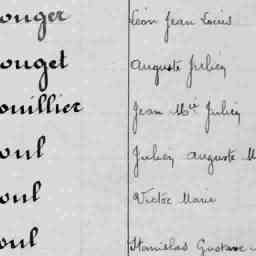 ouger Léon Jean Louis
ouget Auguste Julien
ouillier Jean Mie Julien
oul Julien Auguste M
oul Victor Marie
oul Stanislas Gustave